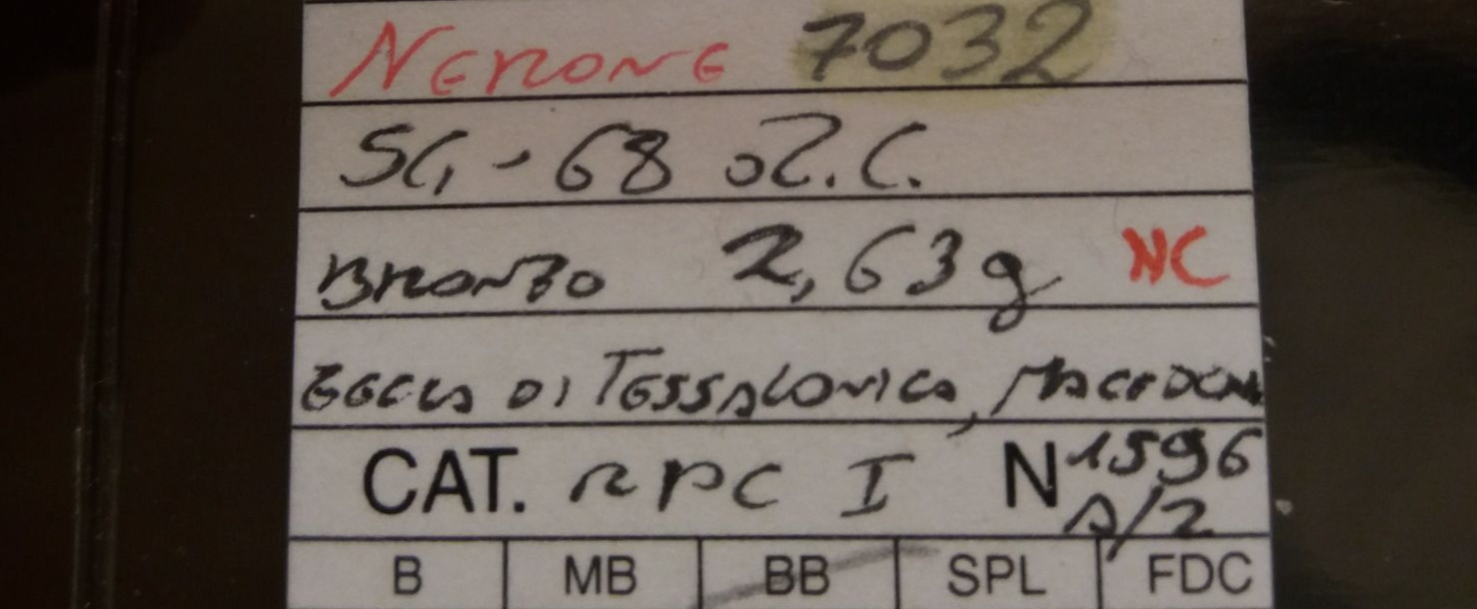 NERONE 7032
54-68 d.C.
BRONZO 2,63g NC
ZECCA DI TESSALONICA, MACEDONIA
CAT. RPC I N 1596
A/2
B MB BB SPL FDC